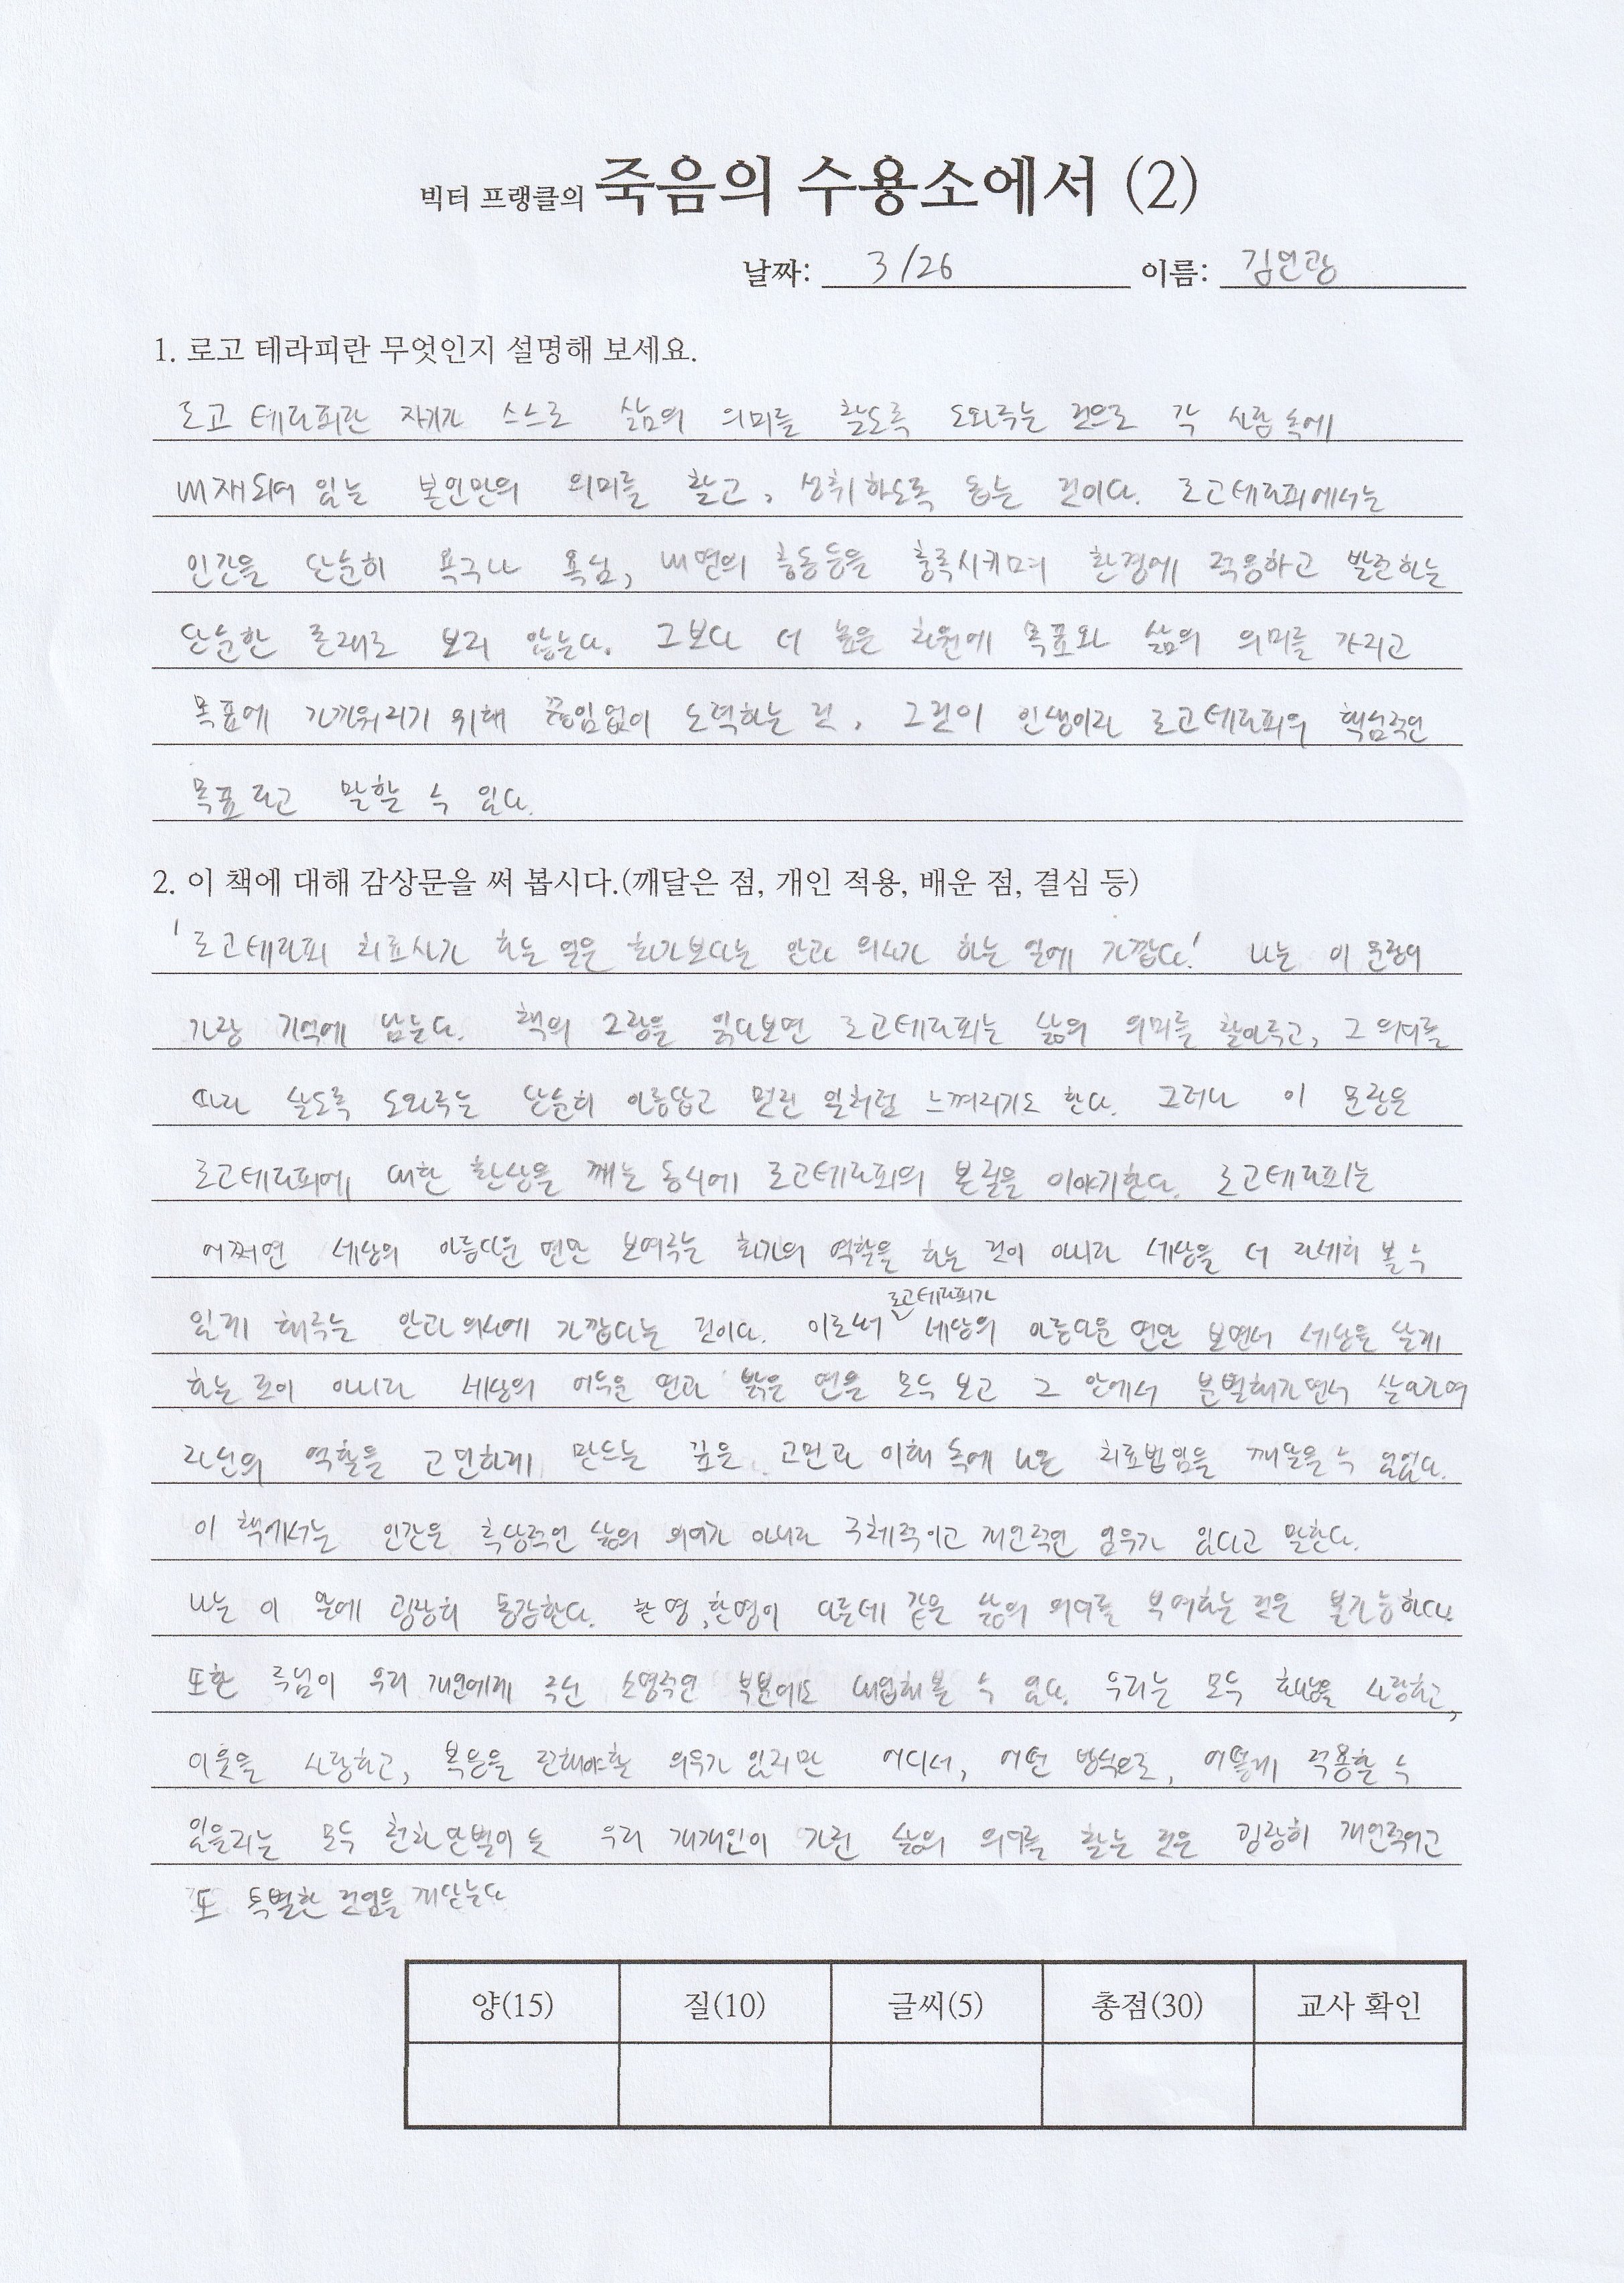 빅터 프랭클의 죽음의 수용소에서 (2)
날짜: 3/26 이름: 김연광
1. 로고 테라피란 무엇인지 설명해 보세요.
로고 테라피란 자기가 스스로 삶의 의미를 찾도록 도와주는 것으로 각 사람 속에
내재되어 있는 본인만의 의미를 찾고, 성취하도록 돕는 것이다. 로고테라피에서는
인간을 단순히 욕구나 욕심, 내면의 충동등을 충족시키며 환경에 적응하고 발전하는
단순한 존재로 보지 않는다. 그보다 더 높은 차원에 목표와 삶의 의미를 가지고
목표에 가까워지기 위해 끊임없이 노력하는 것, 그것이 인생이라 로고테라피의 핵심적인
목표라고 말할 수 있다.
2. 이 책에 대해 감상문을 써 봅시다.(깨달은 점, 개인 적용, 배운 점, 결심 등)
'로고테라피 치료사가 하는 일은 화가보다는 안과 의사가 하는 일에 가깝다.' 나는 이 문장이
가장 기억에 남는다. 책의 2장을 읽다보면 로고테라피는 삶의 의미를 찾아주고, 그 의미를
따라 살도록 도와주는 단순히 아름답고 멋진 일처럼 느껴지기도 한다. 그러나 이 문장은
로고테라피에 대한 환상을 깨는 동시에 로고테라피의 본질을 이야기한다. 로고테라피는
어쩌면 세상의 아름다운 면만 보여주는 화가의 역할을 하는 것이 아니라 세상을 더 자세히 볼 수
있게 해주는 안과 의사에 가깝다는 것이다. 이로써 로고테라피가 세상의 아름다운 면만 보면서 세상을 살게
하는 것이 아니라 세상의 어두운 면과 밝은 면을 모두 보고 그 안에서 분별해가면서 살아가며
자신의 역할을 고민하게 만드는 깊은 고민과 이해 속에 나온 치료법임을 깨달을 수 있었다.
이 책에서는 인간은 추상적인 삶의 의미가 아니라 구체적이고 개인적인 임무가 있다고 말한다.
나는 이 말에 굉장히 동감한다. 한 명, 한명이 다른데 같은 삶의 의미를 부여하는 것은 불가능하다.
또한 주님이 우리 개인에게 주신 소명적인 부분에도 대입해볼 수 있다. 우리는 모두 하나님을 사랑하고,
이웃을 사랑하고, 복음을 전해야할 의무가 있지만 어디서, 어떤 방식으로, 어떻게 적용할 수
있을지는 모두 천차만별이듯 우리 개개인이 가진 삶의 의미를 찾는 것은 굉장히 개인적이고
또 특별한 것임을 깨닫는다
양(15) 질(10) 글씨(5) 총점(30) 교사 확인